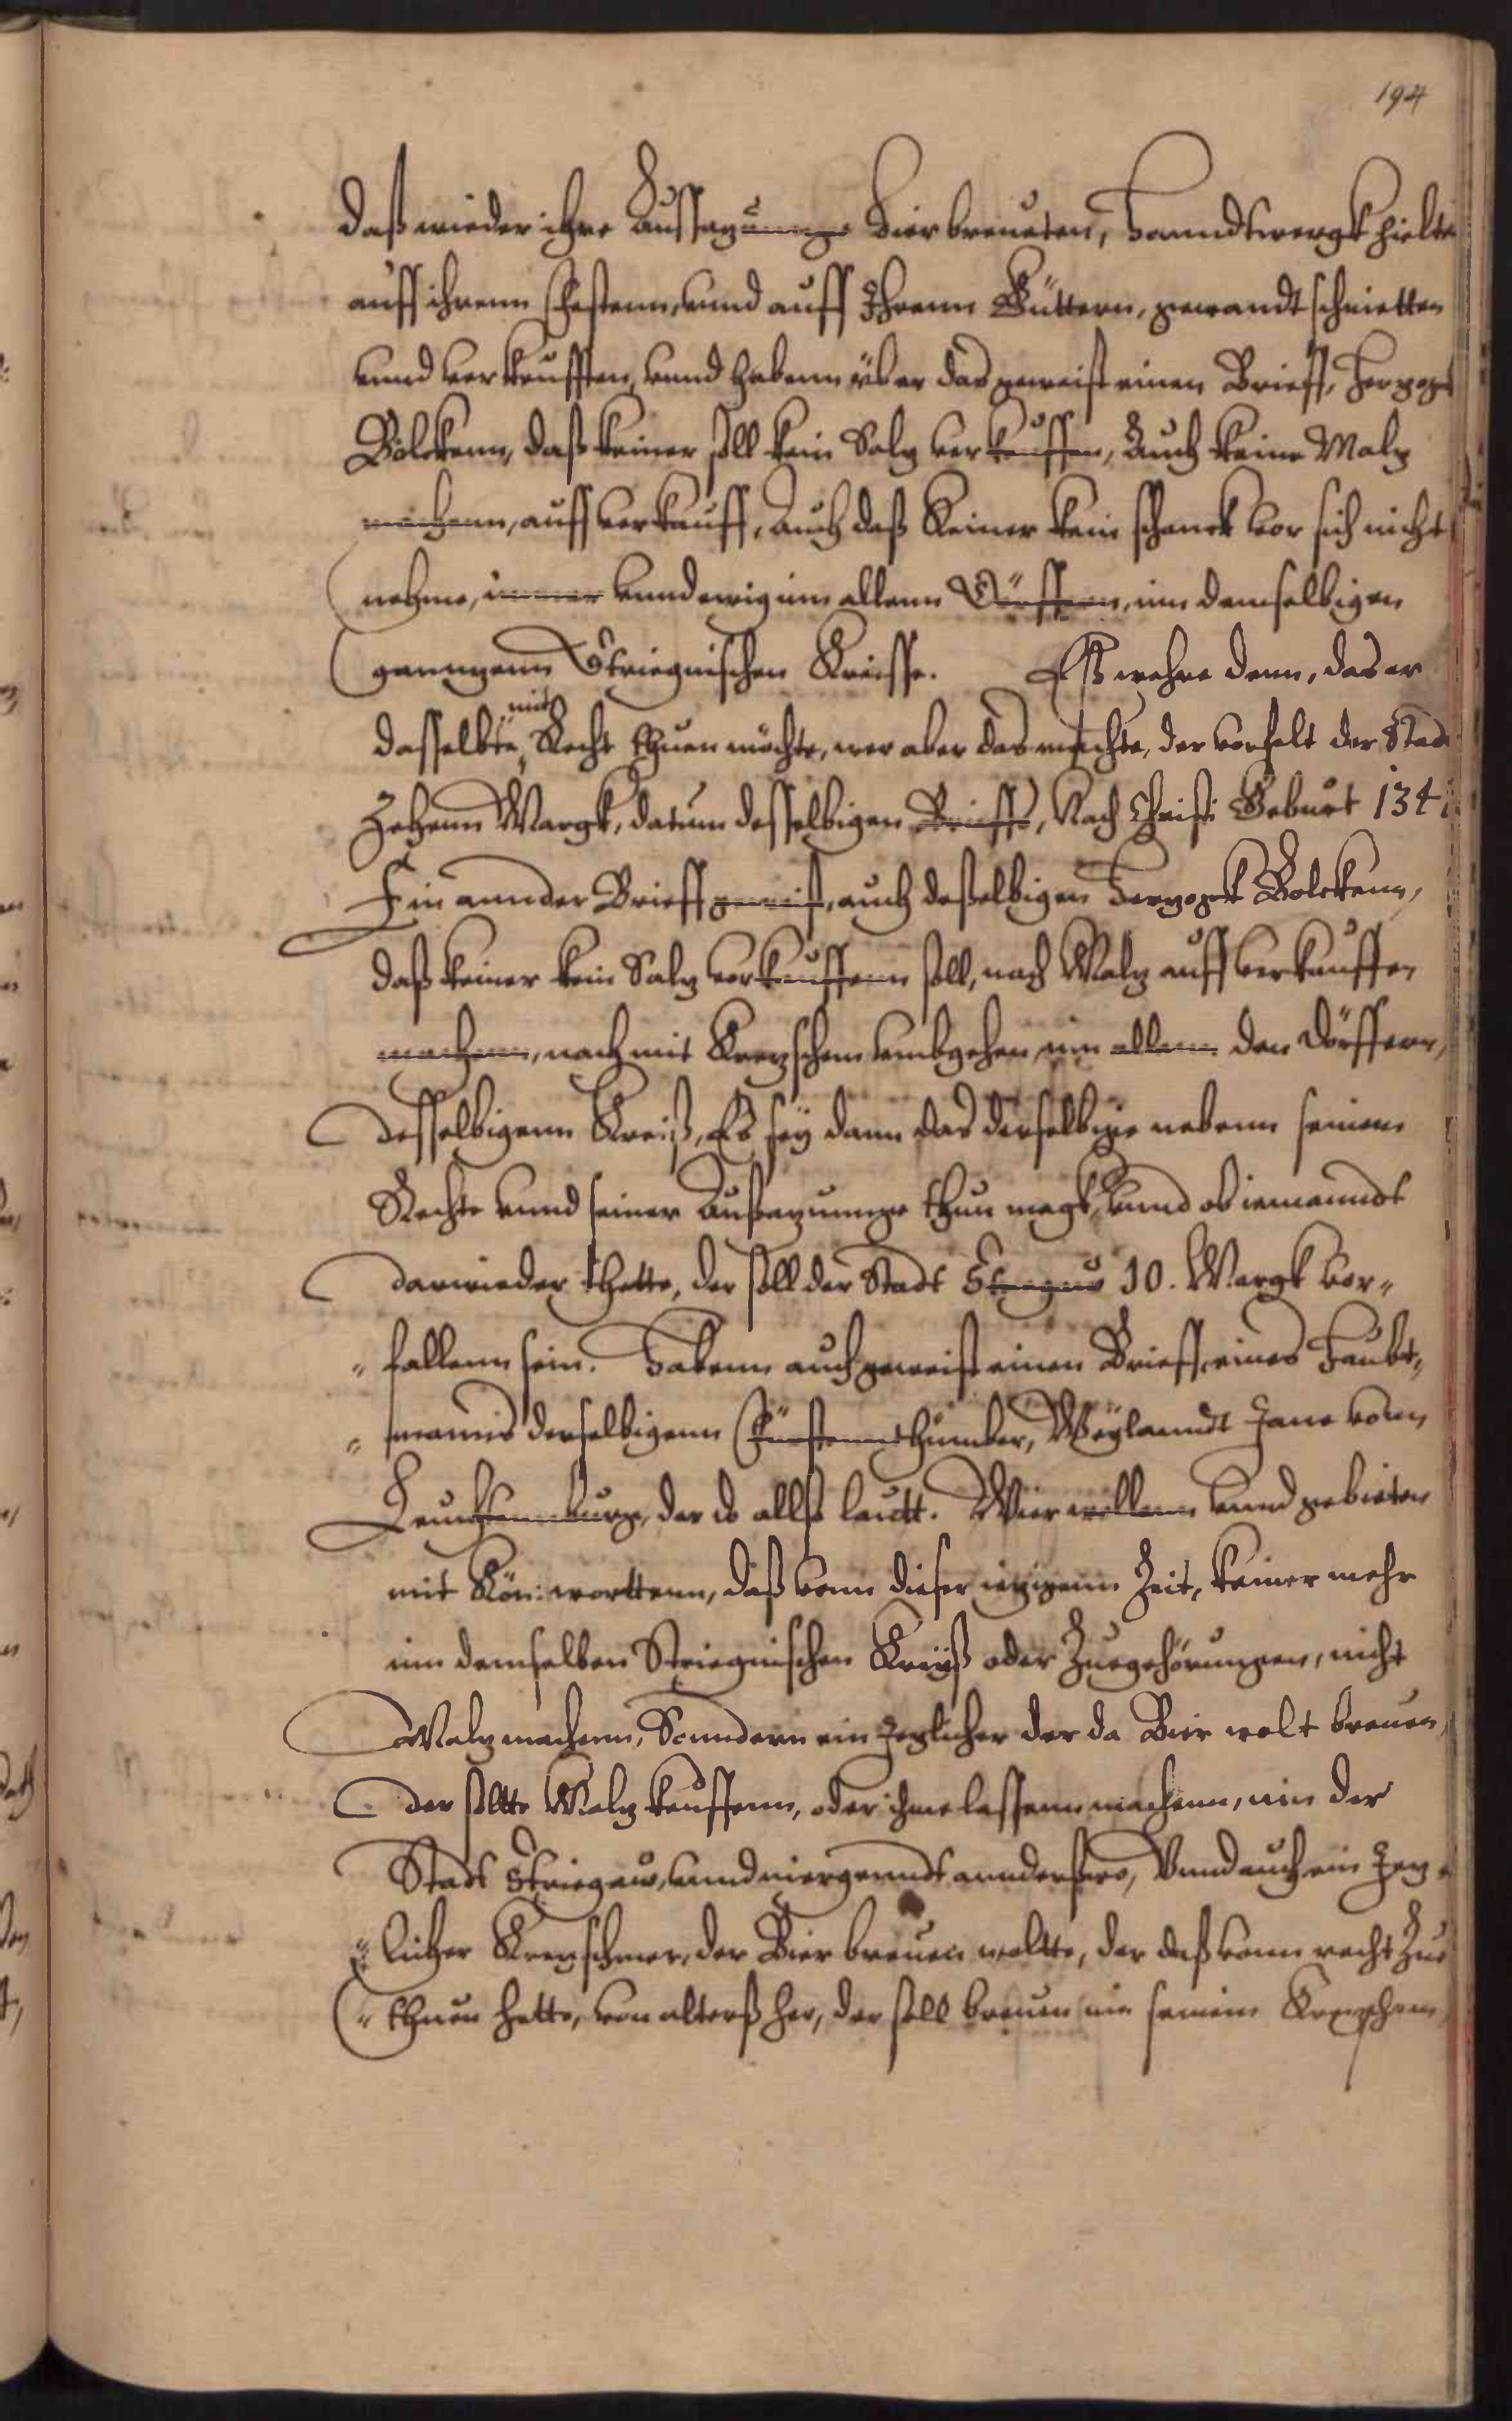 194
daß wieder ihre Aussazunnge Bier breueten, Hanndtwergk hielte
auff ihrenn Chestenn, unnd auff Ihrenn Güttern, gewandt schnietten
unnd verkaufften, unnd habenn über das geweist einen Brieff, Herzogk
Bolckenn, daß keiner soll kein Salz verkauffen, Auch keine Malz
machenn, auff verkauff, Auch daß Keiner kein schanck vor sich nicht
nehme, immer unnd ewig inn allenn Dörffern, inn demselbigen
ganngenn Striegnischen Kreisse. Eß wehre denn, das er
dasselbte mit Recht thuen möchte, wer aber das machte, der vorfelt der Stad
Zehenn Margk, datum desselbigen Brieffs, Nach Christi Geburt 134
Ein annder Brieff geweist, auch deßelbigen Herzogk Bolckenn,
daß keiner kein Salz vorkauffenn soll, noch Malz auff verkauffen
machenn, noch mit Krezschem umbgehen, inn allenn den Dörffern,
desselbigenn Kreiß, Es sey dann das derselbige nebenn seinem
Rechte unnd seiner Außazunnge thun magk, unnd ob iemanndt
darwieder thette, der soll der Stadt Stregus 10. Margk vor„
„fallenn sein. Habenn auch geweist einen Brieff, eines Haubt„
„manns derselbigenn Fürstennthümber, Weylanndt Jane vonn
Leuchtennburg, der do allß lautt. Wier wollenn unnd gebieten
mit Kön: worttenn, daß vonn dieser ieczigenn Zeit, keiner mehr
inn demselben Striegnischen Kreyß oder Zuegehörungen, nicht
Malz machenn, Sonndern ein Jeglicher der da Bier wolt breuen,
der sollte Malz kauffenn, oder ihme lassenn machenn, inn der
Stadt Striegaw, unnd niergenndt annderßwo, Unnd auch ein Jeg„
„licher Krezschmer, der Bier breuen wollte, der daß vonn recht Zue
„thuen hette, von alterß her, der soll breuen inn seinem Krezschem,